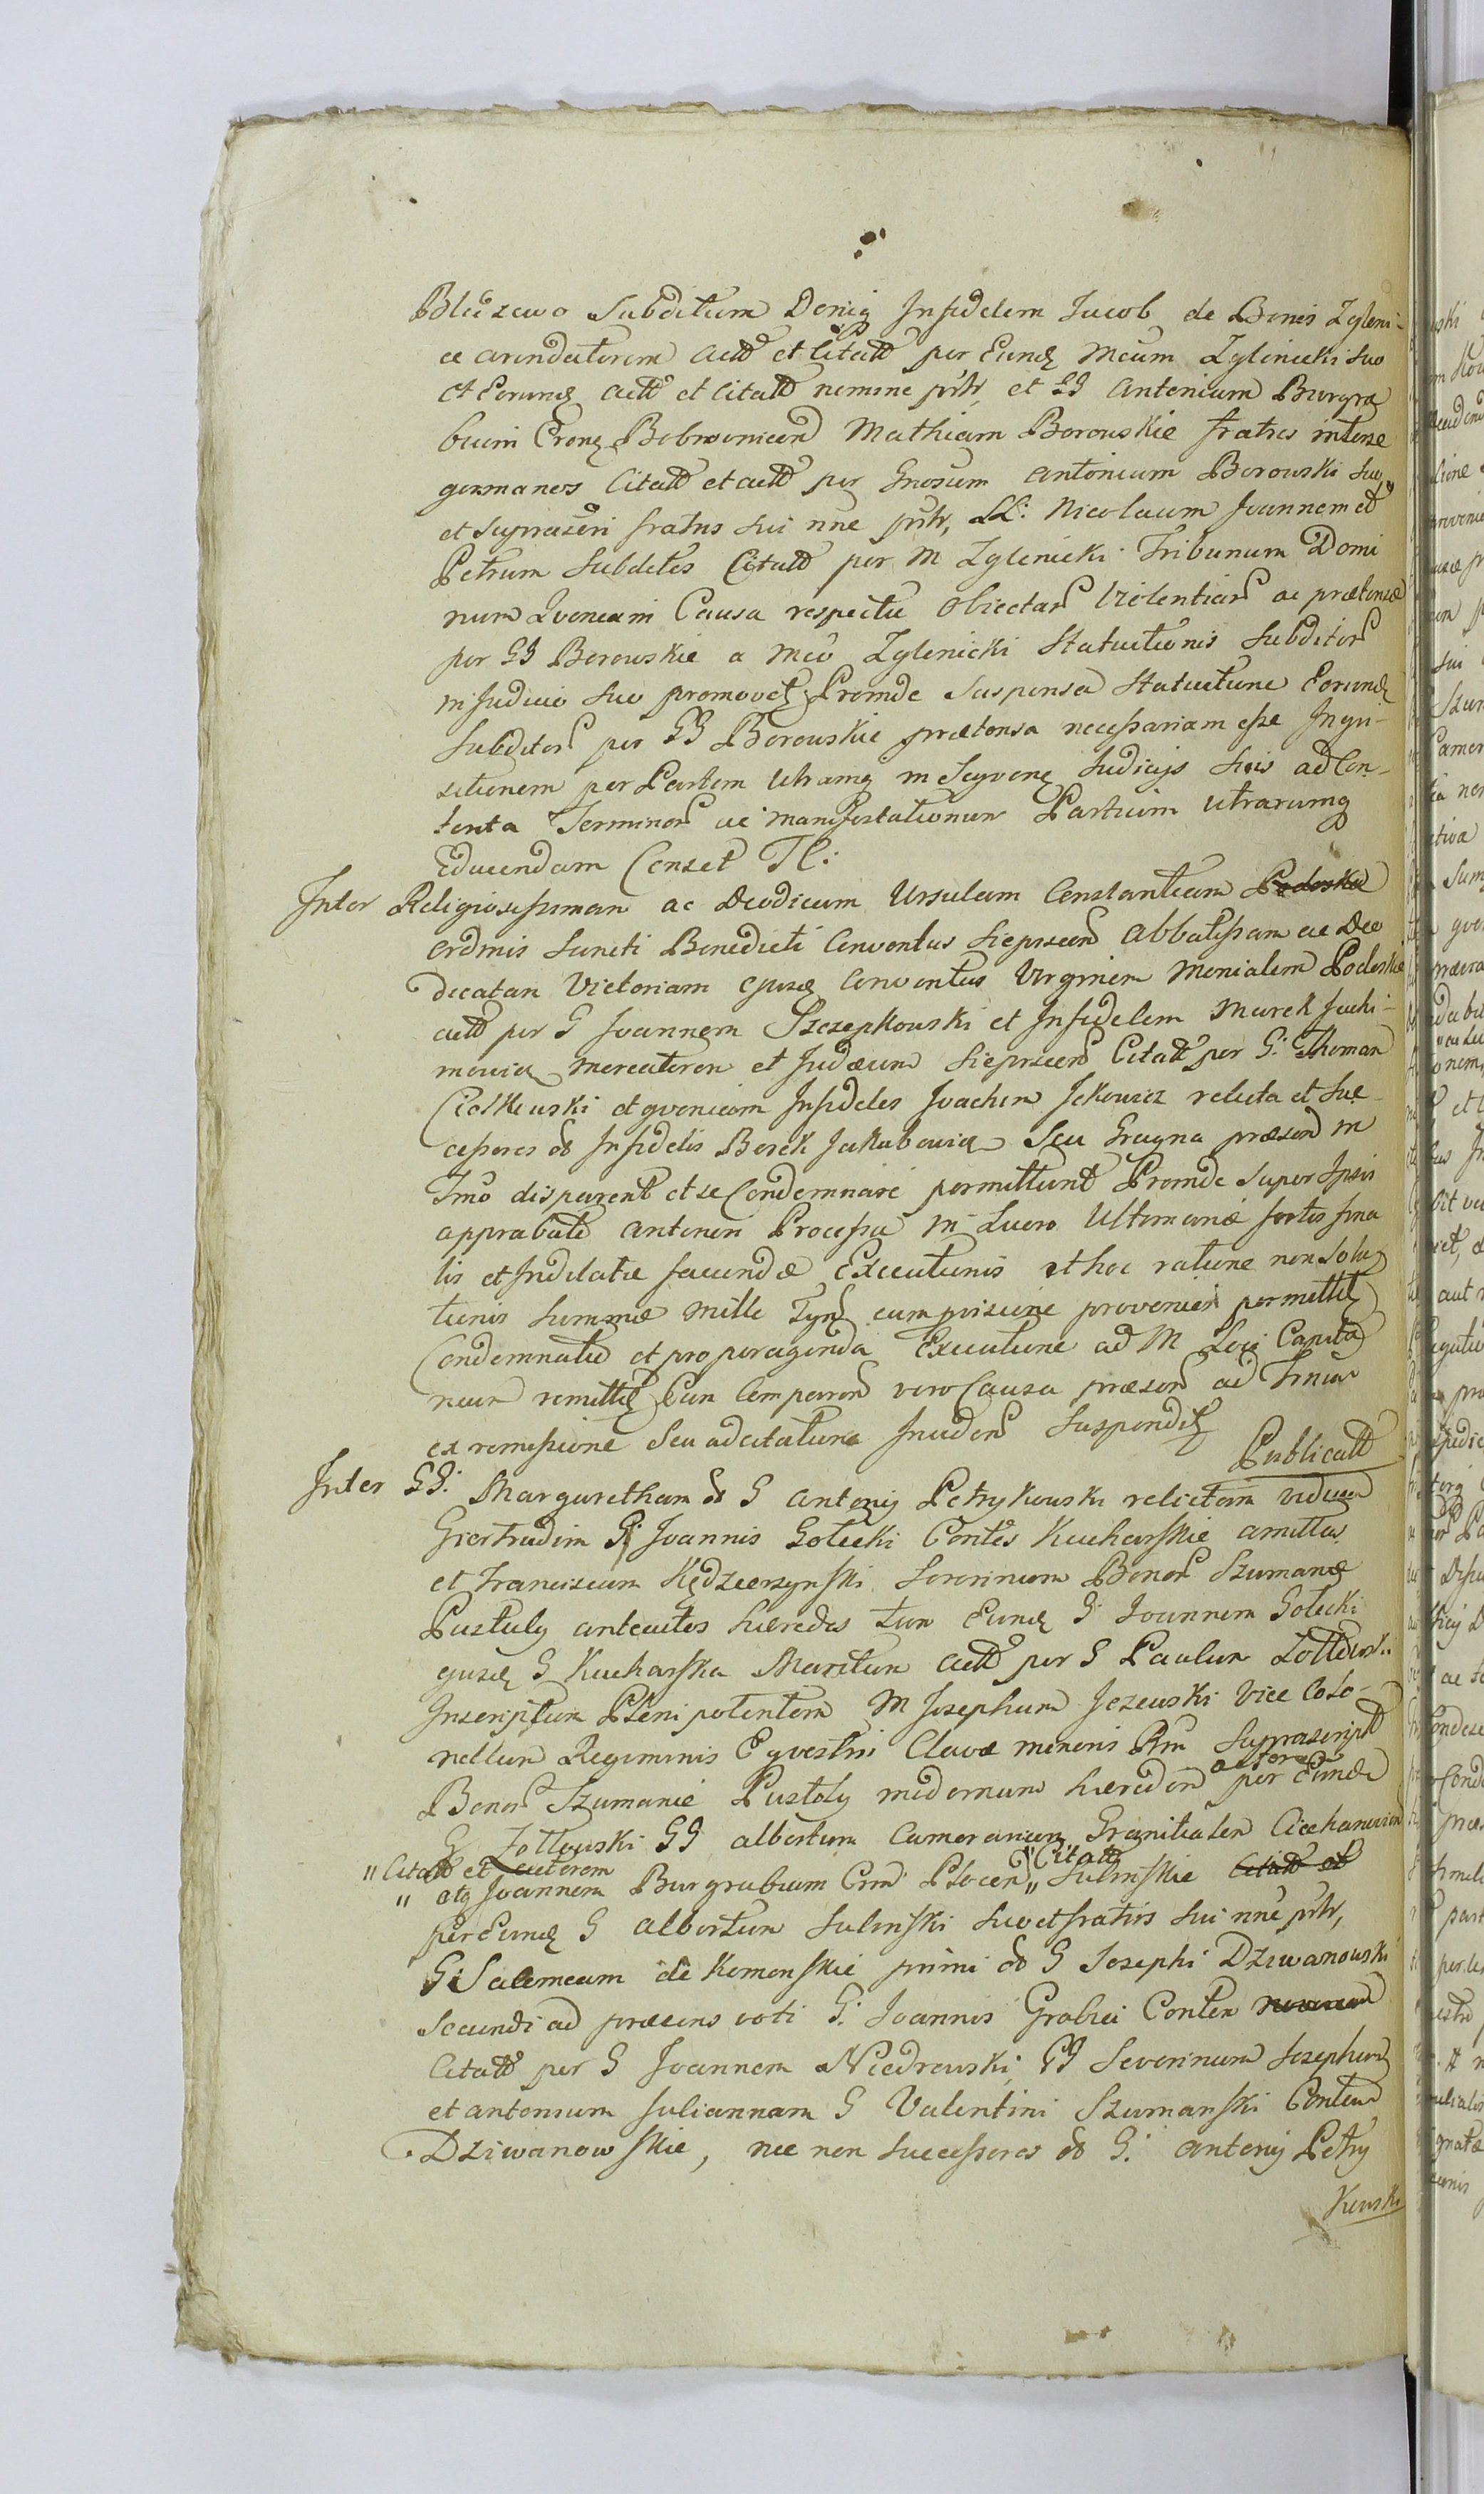 Błuzewo Subditum Deniq Infidelem Jacob de Bonis Zgleni-
ce arendatorem actt et Citatt per Eund Mcum Zglenicki suo
et Eorund actt et Citatt nomine prtr, et GG Antonium Burgra
bium Crone Bobrownicen Mathiam Borowskie fratres inter se
germanos Citatt et actt per Gnosum Antonium Borowski suo
et suprascri fratris sui nne prtr, LL: Nicolaum Joannem et
Petrum Subditos Citatt per M Zglenicki Tribunum Domi
num Quoniam Causa respectu Obiectar Violentiar ac prætensæ
per GG Borowskie a Mco Zglenicki Statuitionis Subditor
in Judicio suo promovet, Proinde Suspensa Statuitione Eorund
Subditor per GG Borowskie prætensa necessariam esse Inqui-
sitionem per Partem Utramq in Seqven Judicijs suis ad Con-
tenta Terminor ac manifestationum Partium Utrarumq
Educendam Censet Tl:
Inter Religiosissimam ac Deodicam Ursulam Constantiam Podoska
ordinis Sancti Benedicti Conventus Sieprcen Abbatissam ac Deo
dicatam Victoriam ejusd Conventus Virginem Monialem Podoskie
actt per G Joannem Szczepkowski et Infidelem Marek Jachi-
mowicz mercatorem et Judæum Sieprcen Citatt per G: Thomam
Ciołkowski et qvoniam Infideles Joachim Jckowicz relicta et Suc-
cessores od Infidelis Berek Jakubowicz Seu Gragna præsen in
Tmo disparent et se Condemnare permittunt Proinde Super Ipsis
approbato anteriori Processu in Lucro Ultimariæ sortis fina
lis et Indilatæ faciendæ Executionis et hoc ratione non Solu
tionis Summæ mille Tynf cum provisione provenien permittit
Condemnatio et pro peragenda Executione ad M Loci Capita
neum remittit Cum Comparen vero Causa præsen ad Tmum
ex remissione Seu adcitatione Inciden Suspendit
Publicatt
Inter GG: Margaretham od G Antonij Petrykowski relictam viduam
Giertrudim G: Joannis Gołecki Contes Kucharskie amittas
et Franciscum Kędzierzynski Sororinum Bonor Szumanie
Pustuly anteuites hæredes tum Eund G Joannem Gołecki
ejusd G Kucharska Maritum actt per G Paulum Zottowski
Inscriptum Plenipotentem M Josephum Jezewski Vice Colo-
nellum Regiminis Eqvestris Clavæ minoris Rni Suprascript
Bonor Szumanie Pustoly modernum hæredem actorem per Eund
G Zottowski GG Albertum Camerarium Granitialem Ciechanovien
„Citatt et actorem
„ atq Joannem Burgrabium Crni Plocen „Citatt„ Sulinskie Citatt et
per Eund G Albertum Sulinski suo et fratris sui nne prtr,
G: Salomeam de Komenskie primi od G Josephi Dziwanowski
Secundi ad præsens voti G: Joannis Grabia Conten
Citatt per G Joannem Niedrowski, GG Severinum Josephum
et Antonium Juliannam G Valentini Szumanski Conten
Dziwanowskie, nec non Successores od G: Antonij Petry
Kowski